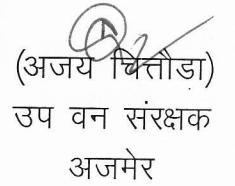 (अजय चित्तौडा)
उप वन संरक्षक
अजमेर